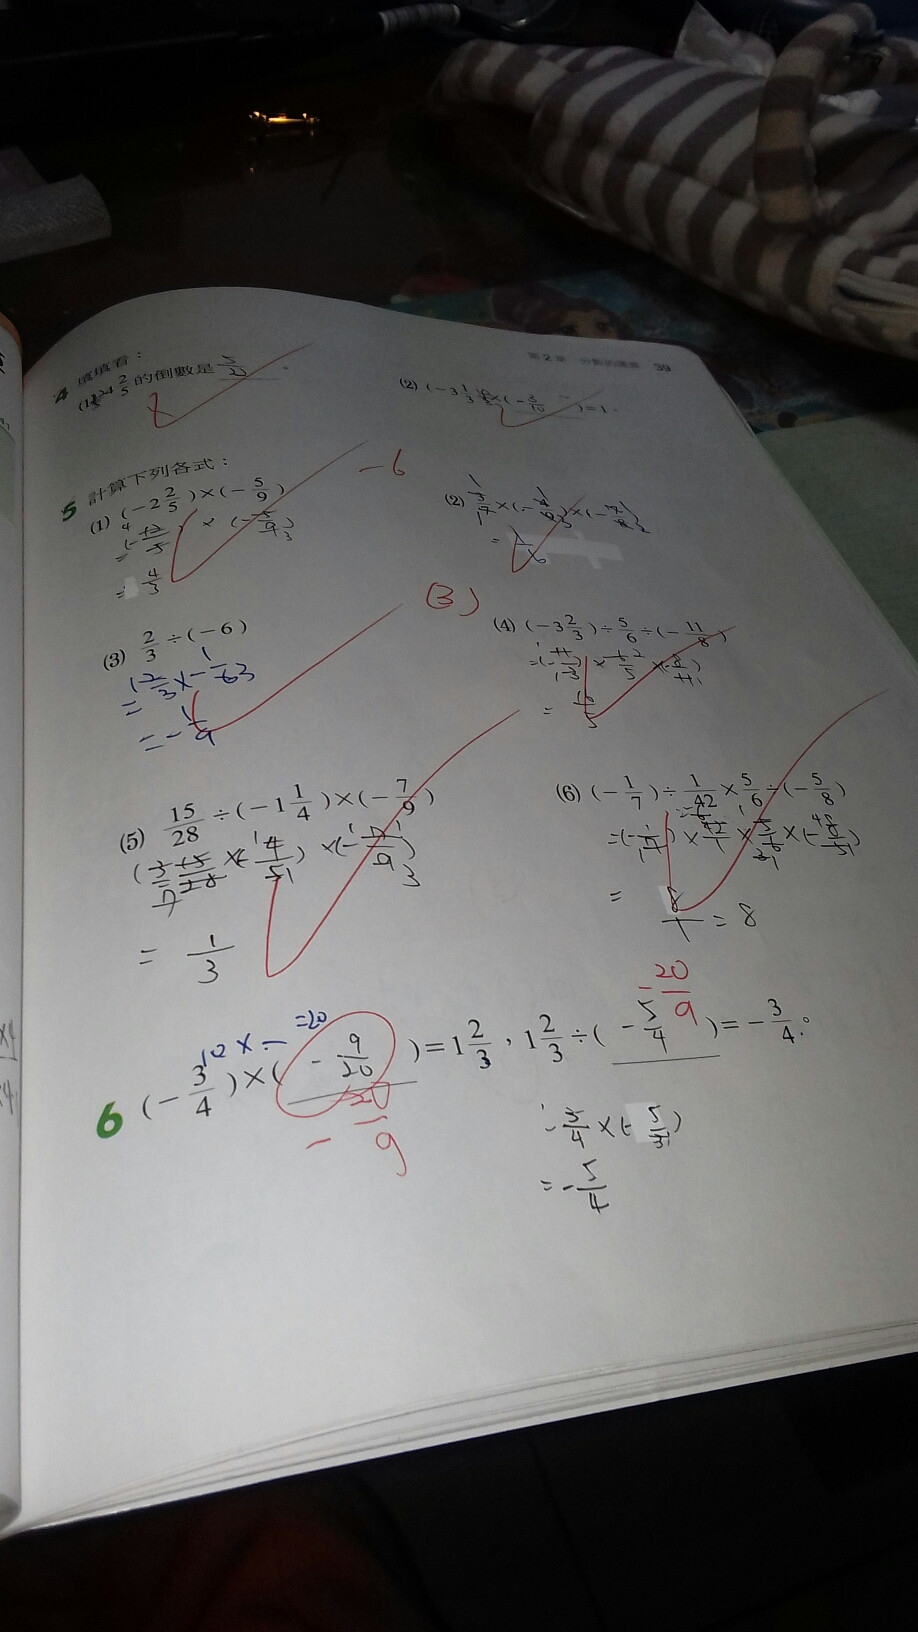 第2章 分數的運算 39
4 填填看：
(1) 4 2/5 的倒數是 5/22 。
(2) (-3 1/3)×(-3/10)=1。
5 計算下列各式：
-6
(1) (-2 2/5)×(-5/9)
(-12/5) × (-5/9)
= 4/3
= 1/6
(3)
(3) 2/3÷(-6)
= 2/3×-1/6
= -1/9
(4) (-3 2/3)÷5/6÷(-11/8)
=(-11/3)×6/5×(-8/11)
= 16/5
(5) 15/28÷(-1 1/4)×(-7/9)
(15/28×(-4/5)×(-7/9)
= 1/3
(6) (-1/7)÷1/42×5/6÷(-5/8)
=(-1/7)×42/1×5/6×(-8/5)
= 8/1 = 8
-20/9
=20
6 (-3/4)×( -9/20 )=1 2/3，1 2/3÷( -5/4 )=-3/4。
-20/9
-3/4×(-5/3)
=-5/4